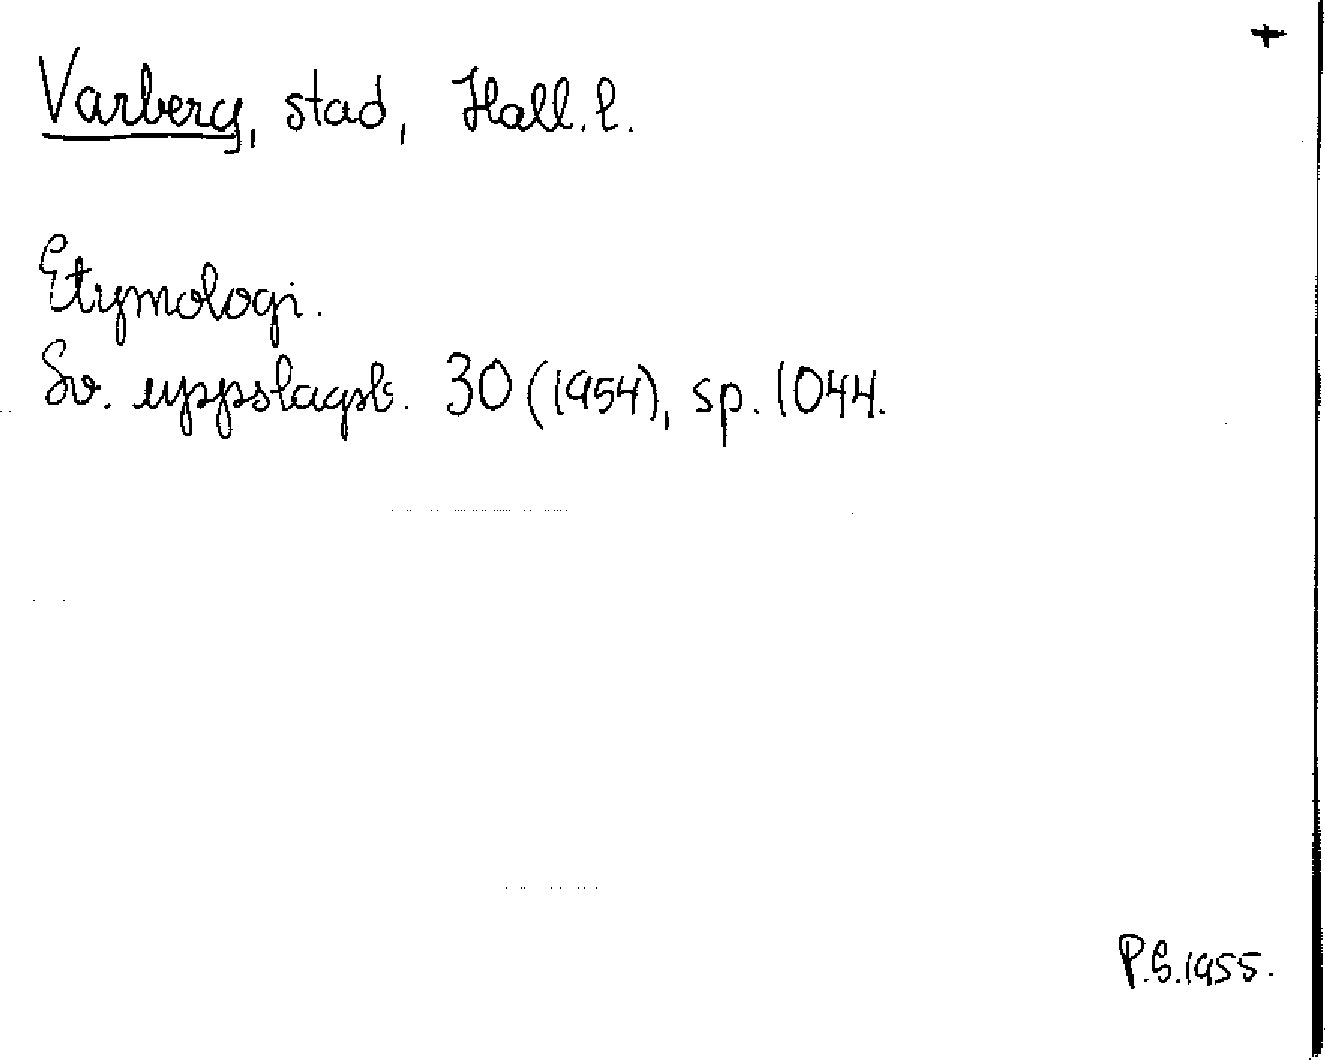 +
Varberg, stad, Hall. l.
Etymologi.
Sv. uppslagsb. 30 (1954), sp. 1044.
P.S.1955.